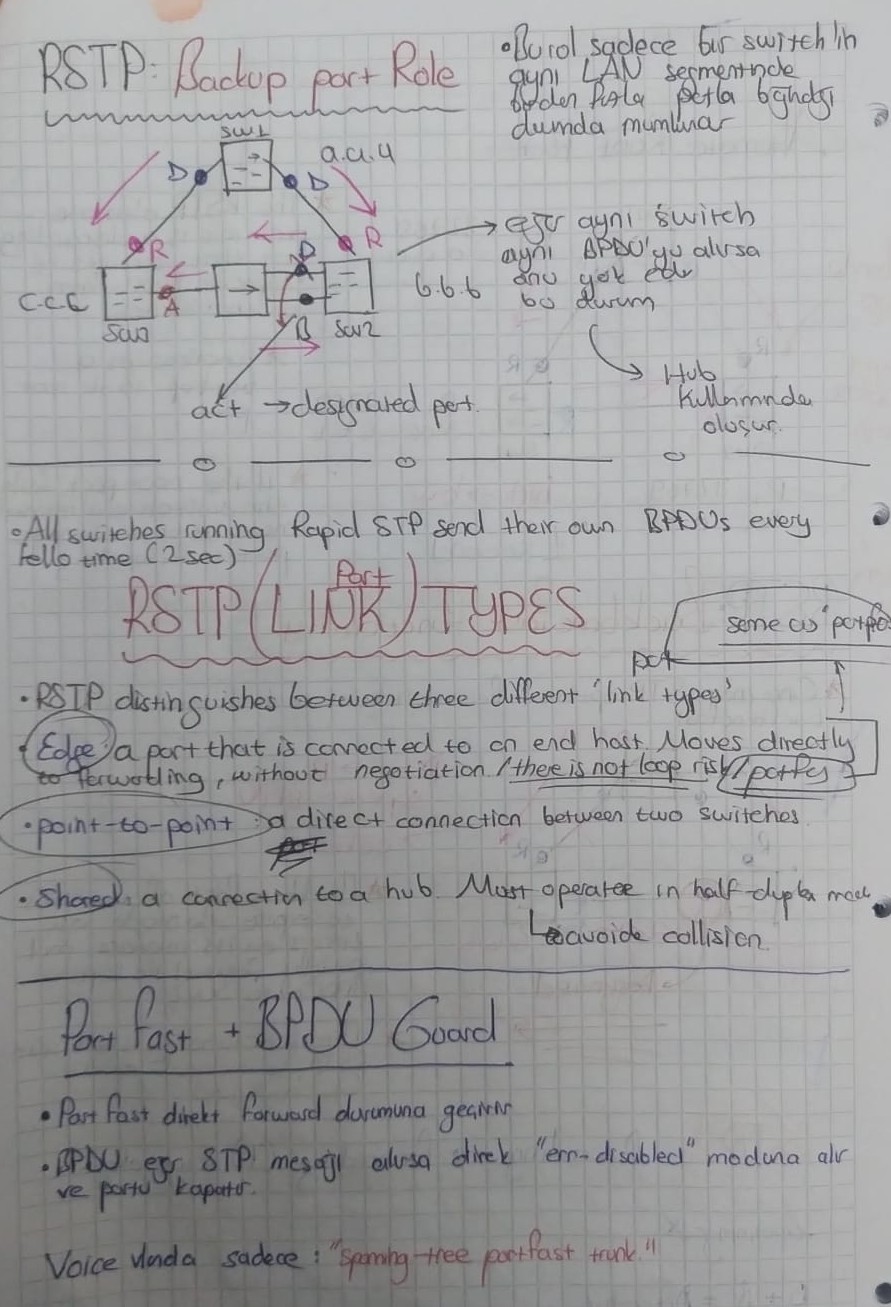 RSTP: Backup port Role
• Bu rol sadece bir switch'in
aynı LAN segmentinde
birden fazla portla bağlıdığı
durumda mumkunar
SW1
D
D
a.a.4
R
R
D
A
B
C.C.C
6.6.6
SW3
SW2
eğer aynı switch
aynı BPDU'yu alırsa
onu yok eder
bu durum
Hub
Kullanımında
oluşur.
act → designated port.
• All switches running Rapid STP send their own BPDUs every
hello time (2sec)
Port
RSTP (LINK) TYPES
same as 'portfa
port
• RSTP distinguishes between three different 'link types'
• Edge: a port that is connected to an end host. Moves directly
to forwarding, without negotiation / there is not loop risk /
• point-to-point : a direct connection between two switches
• Shared: a connection to a hub. Must operatee in half-duplex mode
to avoide collision.
Port fast + BPDU Guard
• Port fast direkt forward durumuna geçirir
• BPDU eğer STP mesajı alırsa direk "err-disabled" moduna alır
ve portu kapatır.
Voice vlanda sadece : "spanning-tree portfast trunk."